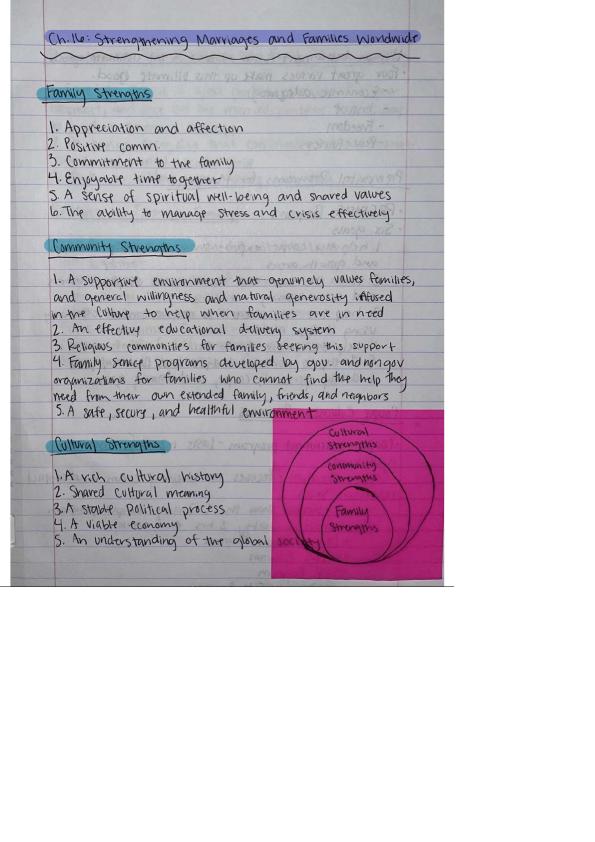 Ch.16: Strengthening Marriages and Families Worldwide
Family Strengths
1. Appreciation and affection
2. Positive comm.
3. Commitment to the family
4. Enjoyable time together
5. A sense of spiritual well-being and shared values
6. The ability to manage stress and crisis effectively
Community Strengths
1. A supportive environment that genuinely values families,
and general willingness and natural generosity infused
in the culture to help when families are in need
2. An effective educational delivery system
3. Religious communities for families seeking this support
4. Family service programs developed by gov. and nongov
organizations for families who cannot find the help they
need from their own extended family, friends, and neighbors
5. A safe, secure, and healthful environment
Cultural Strengths
1. A rich cultural history
2. Shared cultural meaning
3. A stable political process
4. A viable economy
5. An understanding of the global society
Cultural
Strengths
Community
Strengths
Family
Strengths